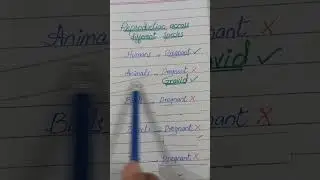 Reproduction across
different species
Humans → Pregnant ✓
Animals → Pregnant ✗
Gravid ✓
Pregnant ✗
Pregnant ✗
Pregnant ✗